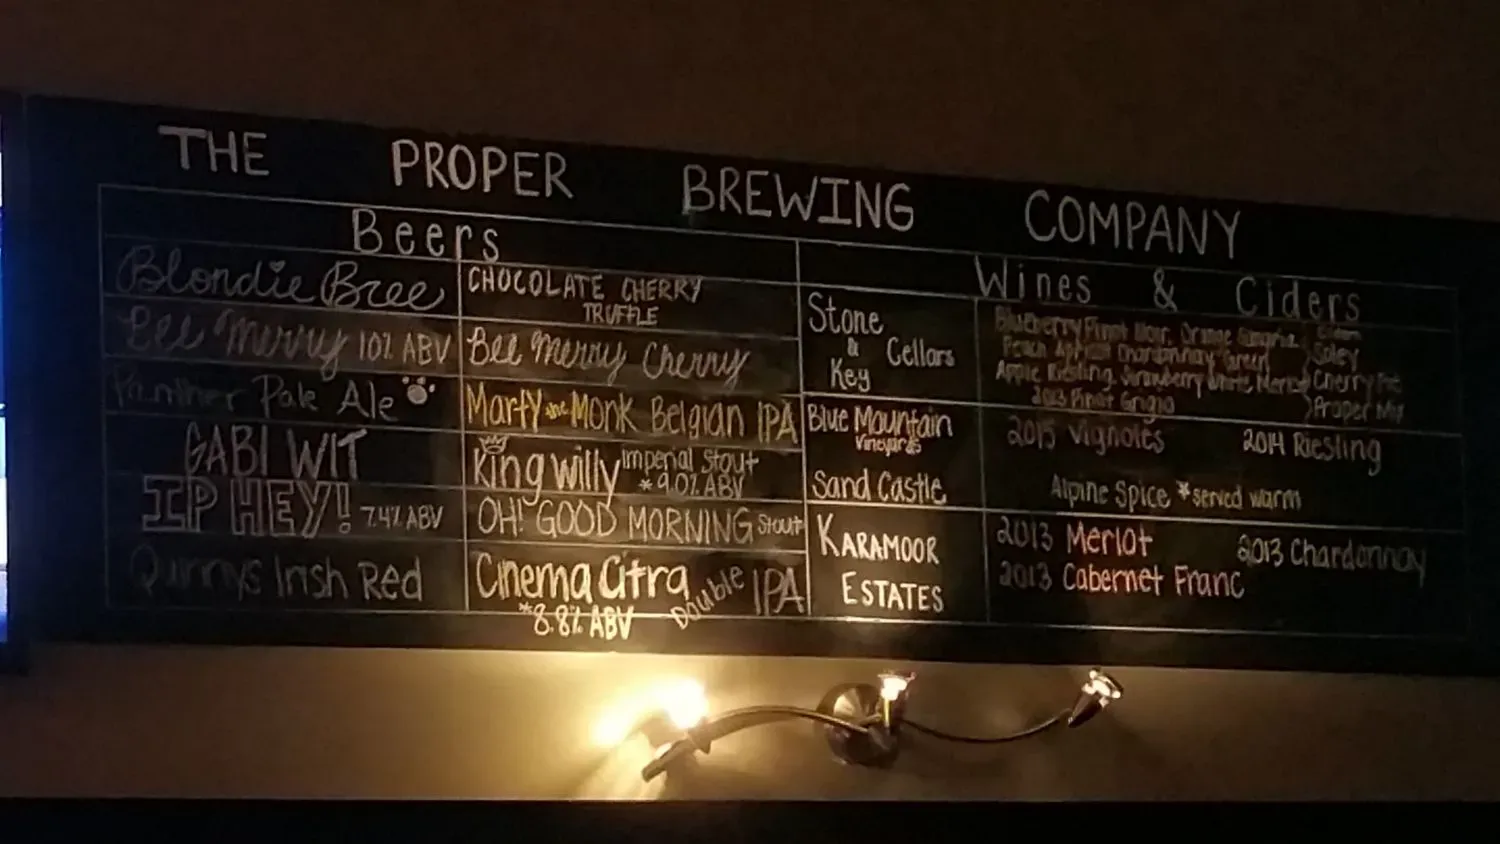 THE PROPER BREWING COMPANY
Beers
Blondie Bree
Bee Merry 10% ABV
Panther Pale Ale
GABI WIT
IP HEY! 7.4% ABV
Quinnys Irish Red
CHOCOLATE CHERRY
TRUFFLE
Bee Merry Cherry
Marty the Monk Belgian IPA
King Willy Imperial Stout
*9.0% ABV
OH! GOOD MORNING Stout
Cinema Citra Double IPA
*8.8% ABV
Wines & Ciders
Stone
& Cellars
Key
Blueberry Pinot Noir, Orange Sangria
Peach Apricot Chardonnay, Green
Apple Riesling, Strawberry White Merlot
2013 Pinot Grigio
Cherry Pie
Proper Mix
Blue Mountain
Vineyards
2015 Vignoles 2014 Riesling
Sand Castle
Alpine Spice *served warm
KARAMOOR
ESTATES
2013 Merlot 2013 Chardonnay
2013 Cabernet Franc